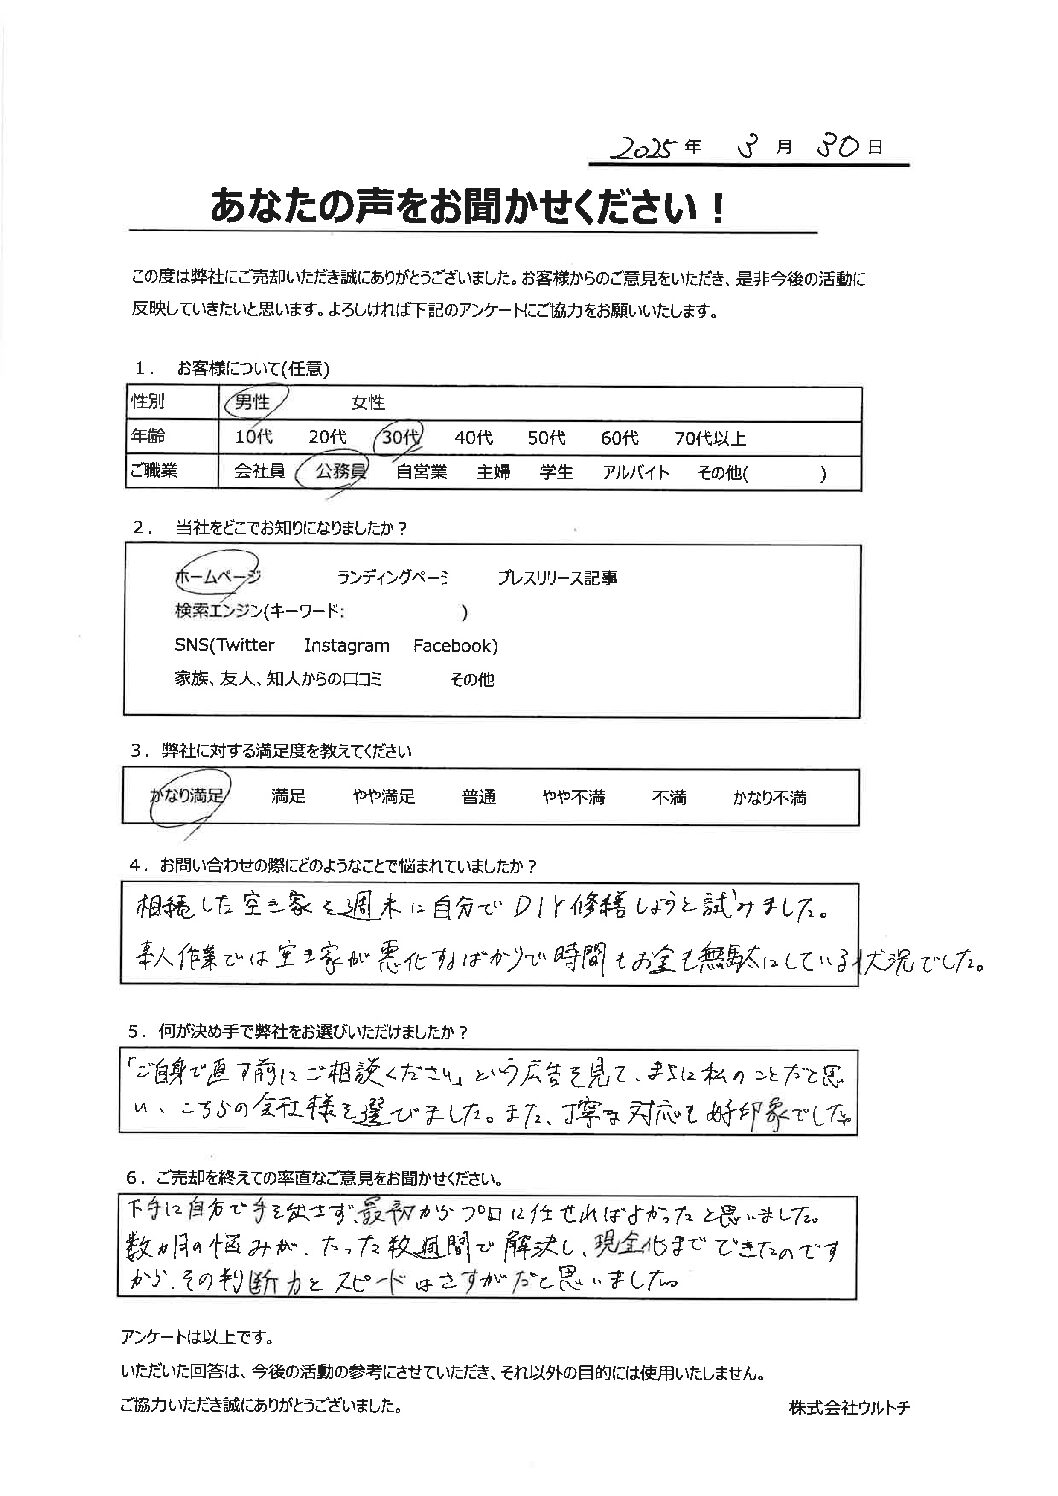 2025年 3月 30日
あなたの声をお聞かせください！
この度は弊社にご売却いただき誠にありがとうございました。お客様からのご意見をいただき、是非今後の活動に
反映していきたいと思います。よろしければ下記のアンケートにご協力をお願いいたします。
1． お客様について(任意)
性別 男性 女性
年齢 10代 20代 30代 40代 50代 60代 70代以上
ご職業 会社員 公務員 自営業 主婦 学生 アルバイト その他( )
2． 当社をどこでお知りになりましたか？
ホームページ ランディングページ プレスリリース記事
検索エンジン(キーワード: )
SNS(Twitter Instagram Facebook)
家族、友人、知人からの口コミ その他
3．弊社に対する満足度を教えてください
かなり満足 満足 やや満足 普通 やや不満 不満 かなり不満
4．お問い合わせの際にどのようなことで悩まれていましたか？
相続した空き家を週末に自分でDIY修繕しようと試みました。
素人作業では空き家が悪化するばかりで時間もお金も無駄にしている状況でした。
5．何が決め手で弊社をお選びいただけましたか？
「ご自身で直す前にご相談ください」という広告を見て、まさに私のことだと思
い、こちらの会社様を選びました。また、丁寧な対応も好印象でした。
6．ご売却を終えての率直なご意見をお聞かせください。
下手に自分で手を出さず、最初からプロに任せればよかったと思いました。
数か月の悩みが、たった数週間で解決し、現金化までできたのです
から、その判断力とスピードはさすがだと思いました。
アンケートは以上です。
いただいた回答は、今後の活動の参考にさせていただき、それ以外の目的には使用いたしません。
ご協力いただき誠にありがとうございました。 株式会社ウルトチ